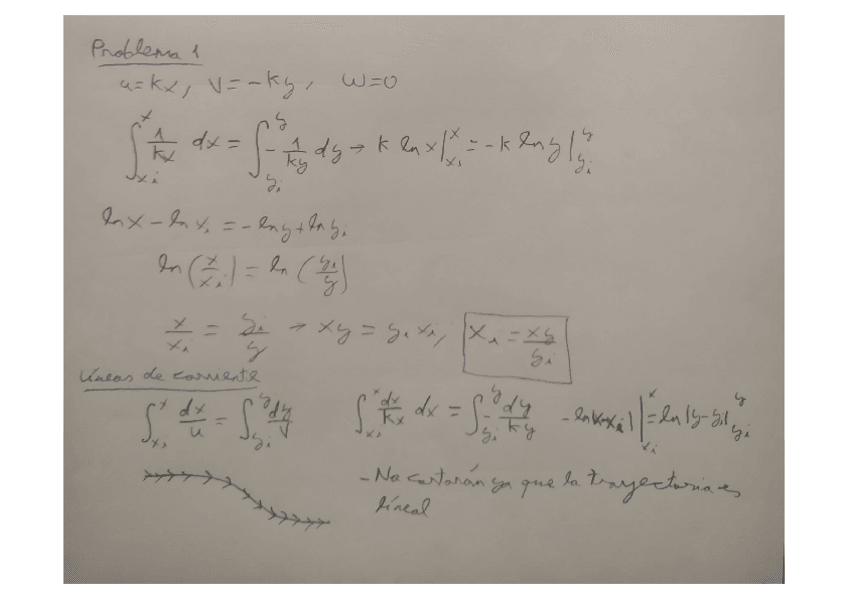 Problema 1
u=kx, v=-ky, w=0
∫_{xi}^{x} 1/kx dx = ∫_{yi}^{y} - 1/ky dy → k ln x|_{xi}^{x} = -k ln y|_{yi}^{y}
ln x - ln xi = - ln y + ln yi
ln (x/xi) = ln (yi/y)
x/xi = yi/y → xy = yi xi, xi = xy/yi
Líneas de corriente
∫_{xi}^{x} dx/u = ∫_{yi}^{y} dy/v ∫_{xi}^{x} dx/kx dx = ∫_{yi}^{y} - dy/ky = ln|y-yi|_{yi}^{y}
- No cortarán ya que la trayectoria es
lineal